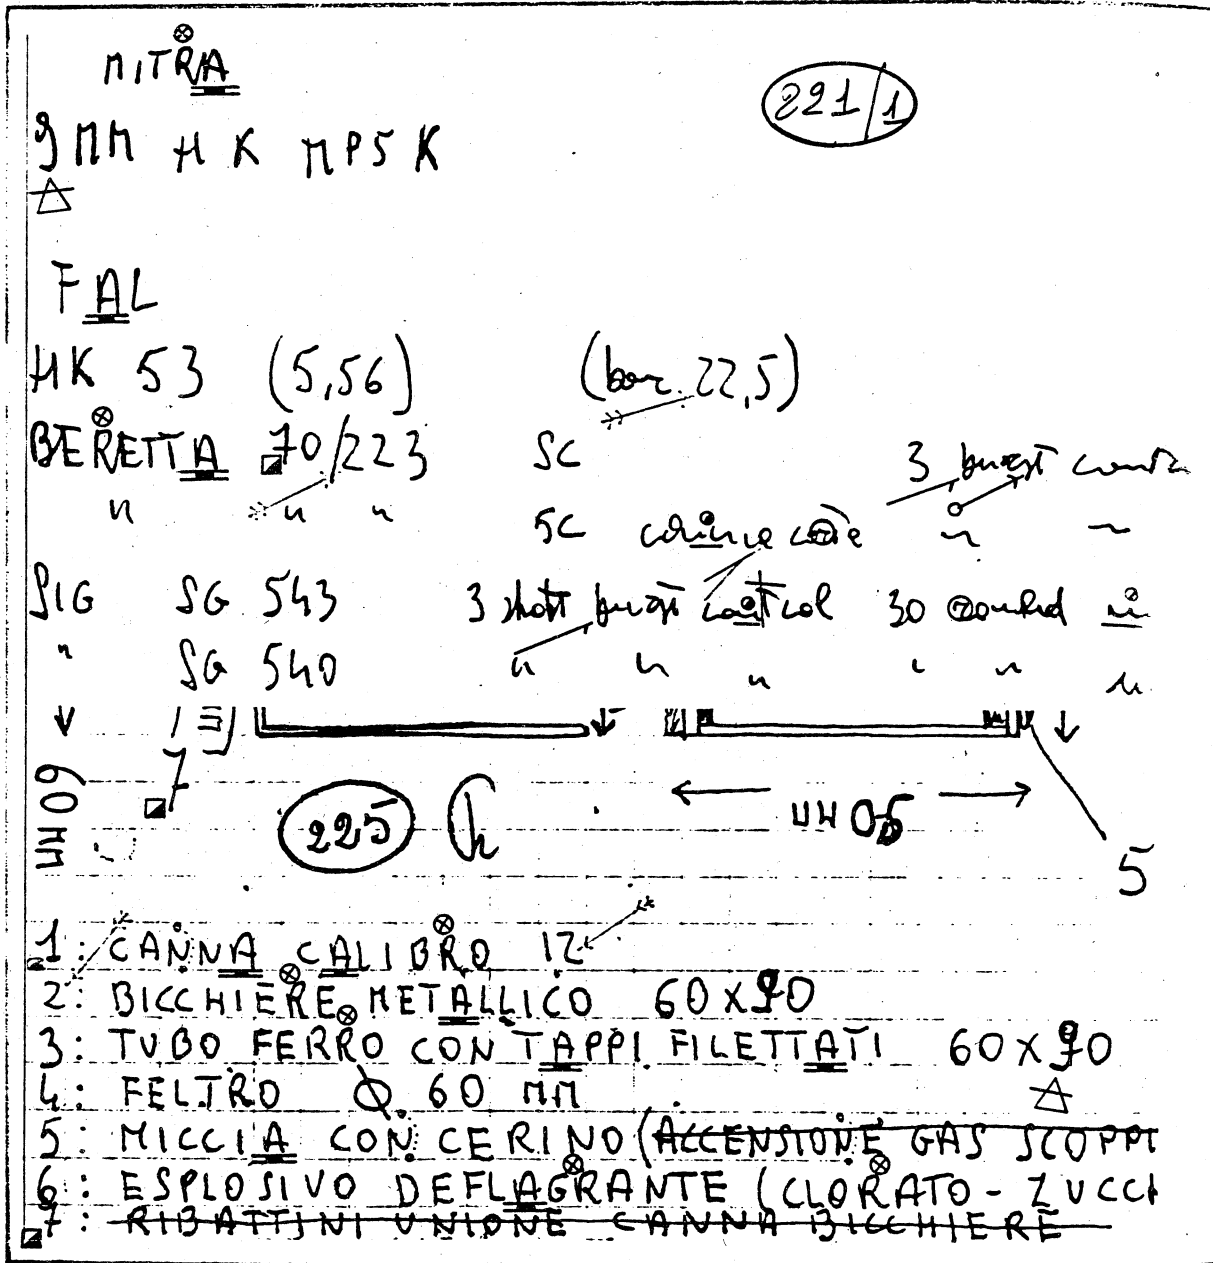 MITRA
221/1
9MM HK MP5K
FAL
HK 53 (5,56) (22,5)
BERETTA 70/223 SC 3 burst
" " " SC " "
SIG SG 543 3 shot burst control 30 round in
" SG 540 " " " " " "
60 MM
7
225
50 MM
5
1: CANNA CALIBRO 12
2: BICCHIERE METALLICO 60X90
3: TUBO FERRO CON TAPPI FILETTATI 60X90
4: FELTRO Ø 60 MM
5: MICCIA CON CERINO (ACCENSIONE GAS SCOPPI
6: ESPLOSIVO DEFLAGRANTE (CLORATO - ZUCCH
7: RIBATTINI UNIONE CANNA BICCHIERE